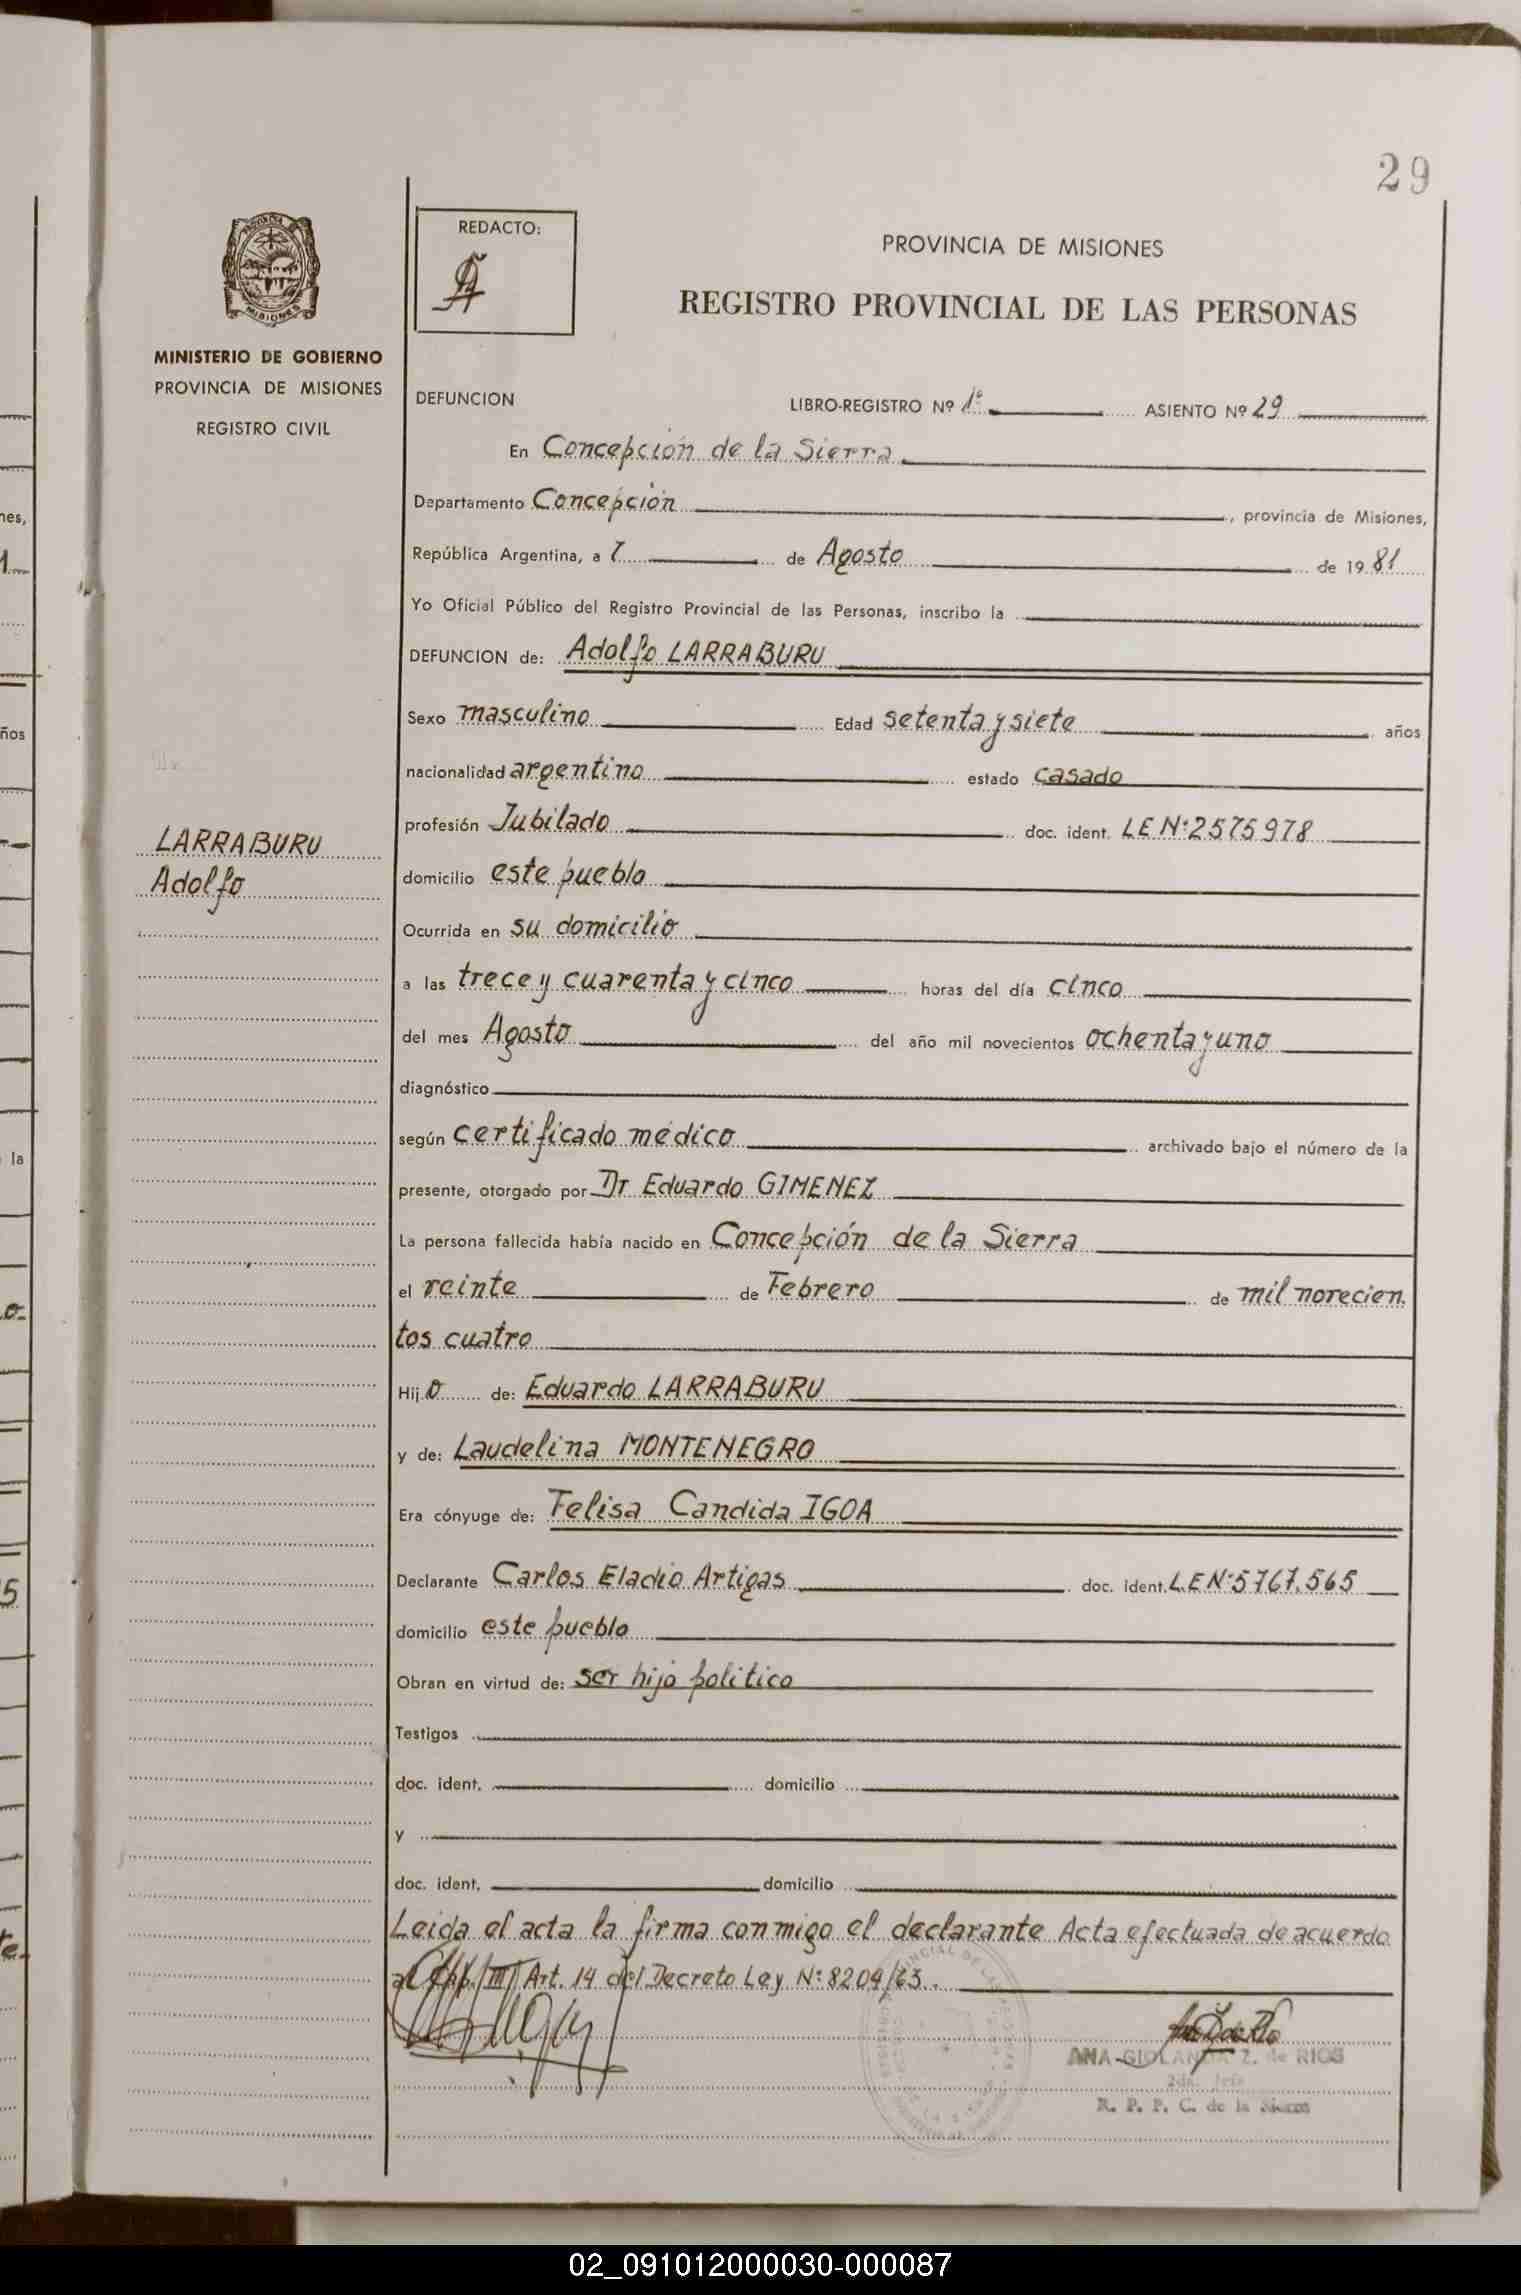 29
REDACTO:
PROVINCIA DE MISIONES
REGISTRO PROVINCIAL DE LAS PERSONAS
MISIONES
MINISTERIO DE GOBIERNO
PROVINCIA DE MISIONES
REGISTRO CIVIL
LARRABURU
Adolfo
DEFUNCION LIBRO-REGISTRO Nº 1º ASIENTO Nº 29
En Concepción de la Sierra
Departamento Concepción, provincia de Misiones,
República Argentina, a 7 de Agosto de 1981
Yo Oficial Público del Registro Provincial de las Personas, inscribo la
DEFUNCION de: Adolfo LARRABURU
Sexo masculino Edad setenta y siete años
nacionalidad argentino estado casado
profesión Jubilado doc. ident. LE Nº 2575978
domicilio este pueblo
Ocurrida en su domicilio
a las trece y cuarenta y cinco horas del día cinco
del mes Agosto del año mil novecientos ochenta y uno
diagnóstico
según certificado médico archivado bajo el número de la
presente, otorgado por Dr Eduardo GIMENEZ
La persona fallecida había nacido en Concepción de la Sierra
el veinte de Febrero de mil novecien
tos cuatro
Hijo de: Eduardo LARRABURU
y de: Laudelina MONTENEGRO
Era cónyuge de: Felisa Candida IGOA
Declarante Carlos Eladio Artigas doc. ident. L.E Nº 5767.565
domicilio este pueblo
Obran en virtud de: ser hijo politico
Testigos
doc. ident. domicilio
y
doc. ident. domicilio
Leida el acta la firma conmigo el declarante Acta efectuada de acuerdo
al Cap. III Art. 14 del Decreto Ley Nº 8204/63.
ANA GIOLANDA Z. de RIOS
R. P. P. C. de la Sierra
02_091012000030-000087